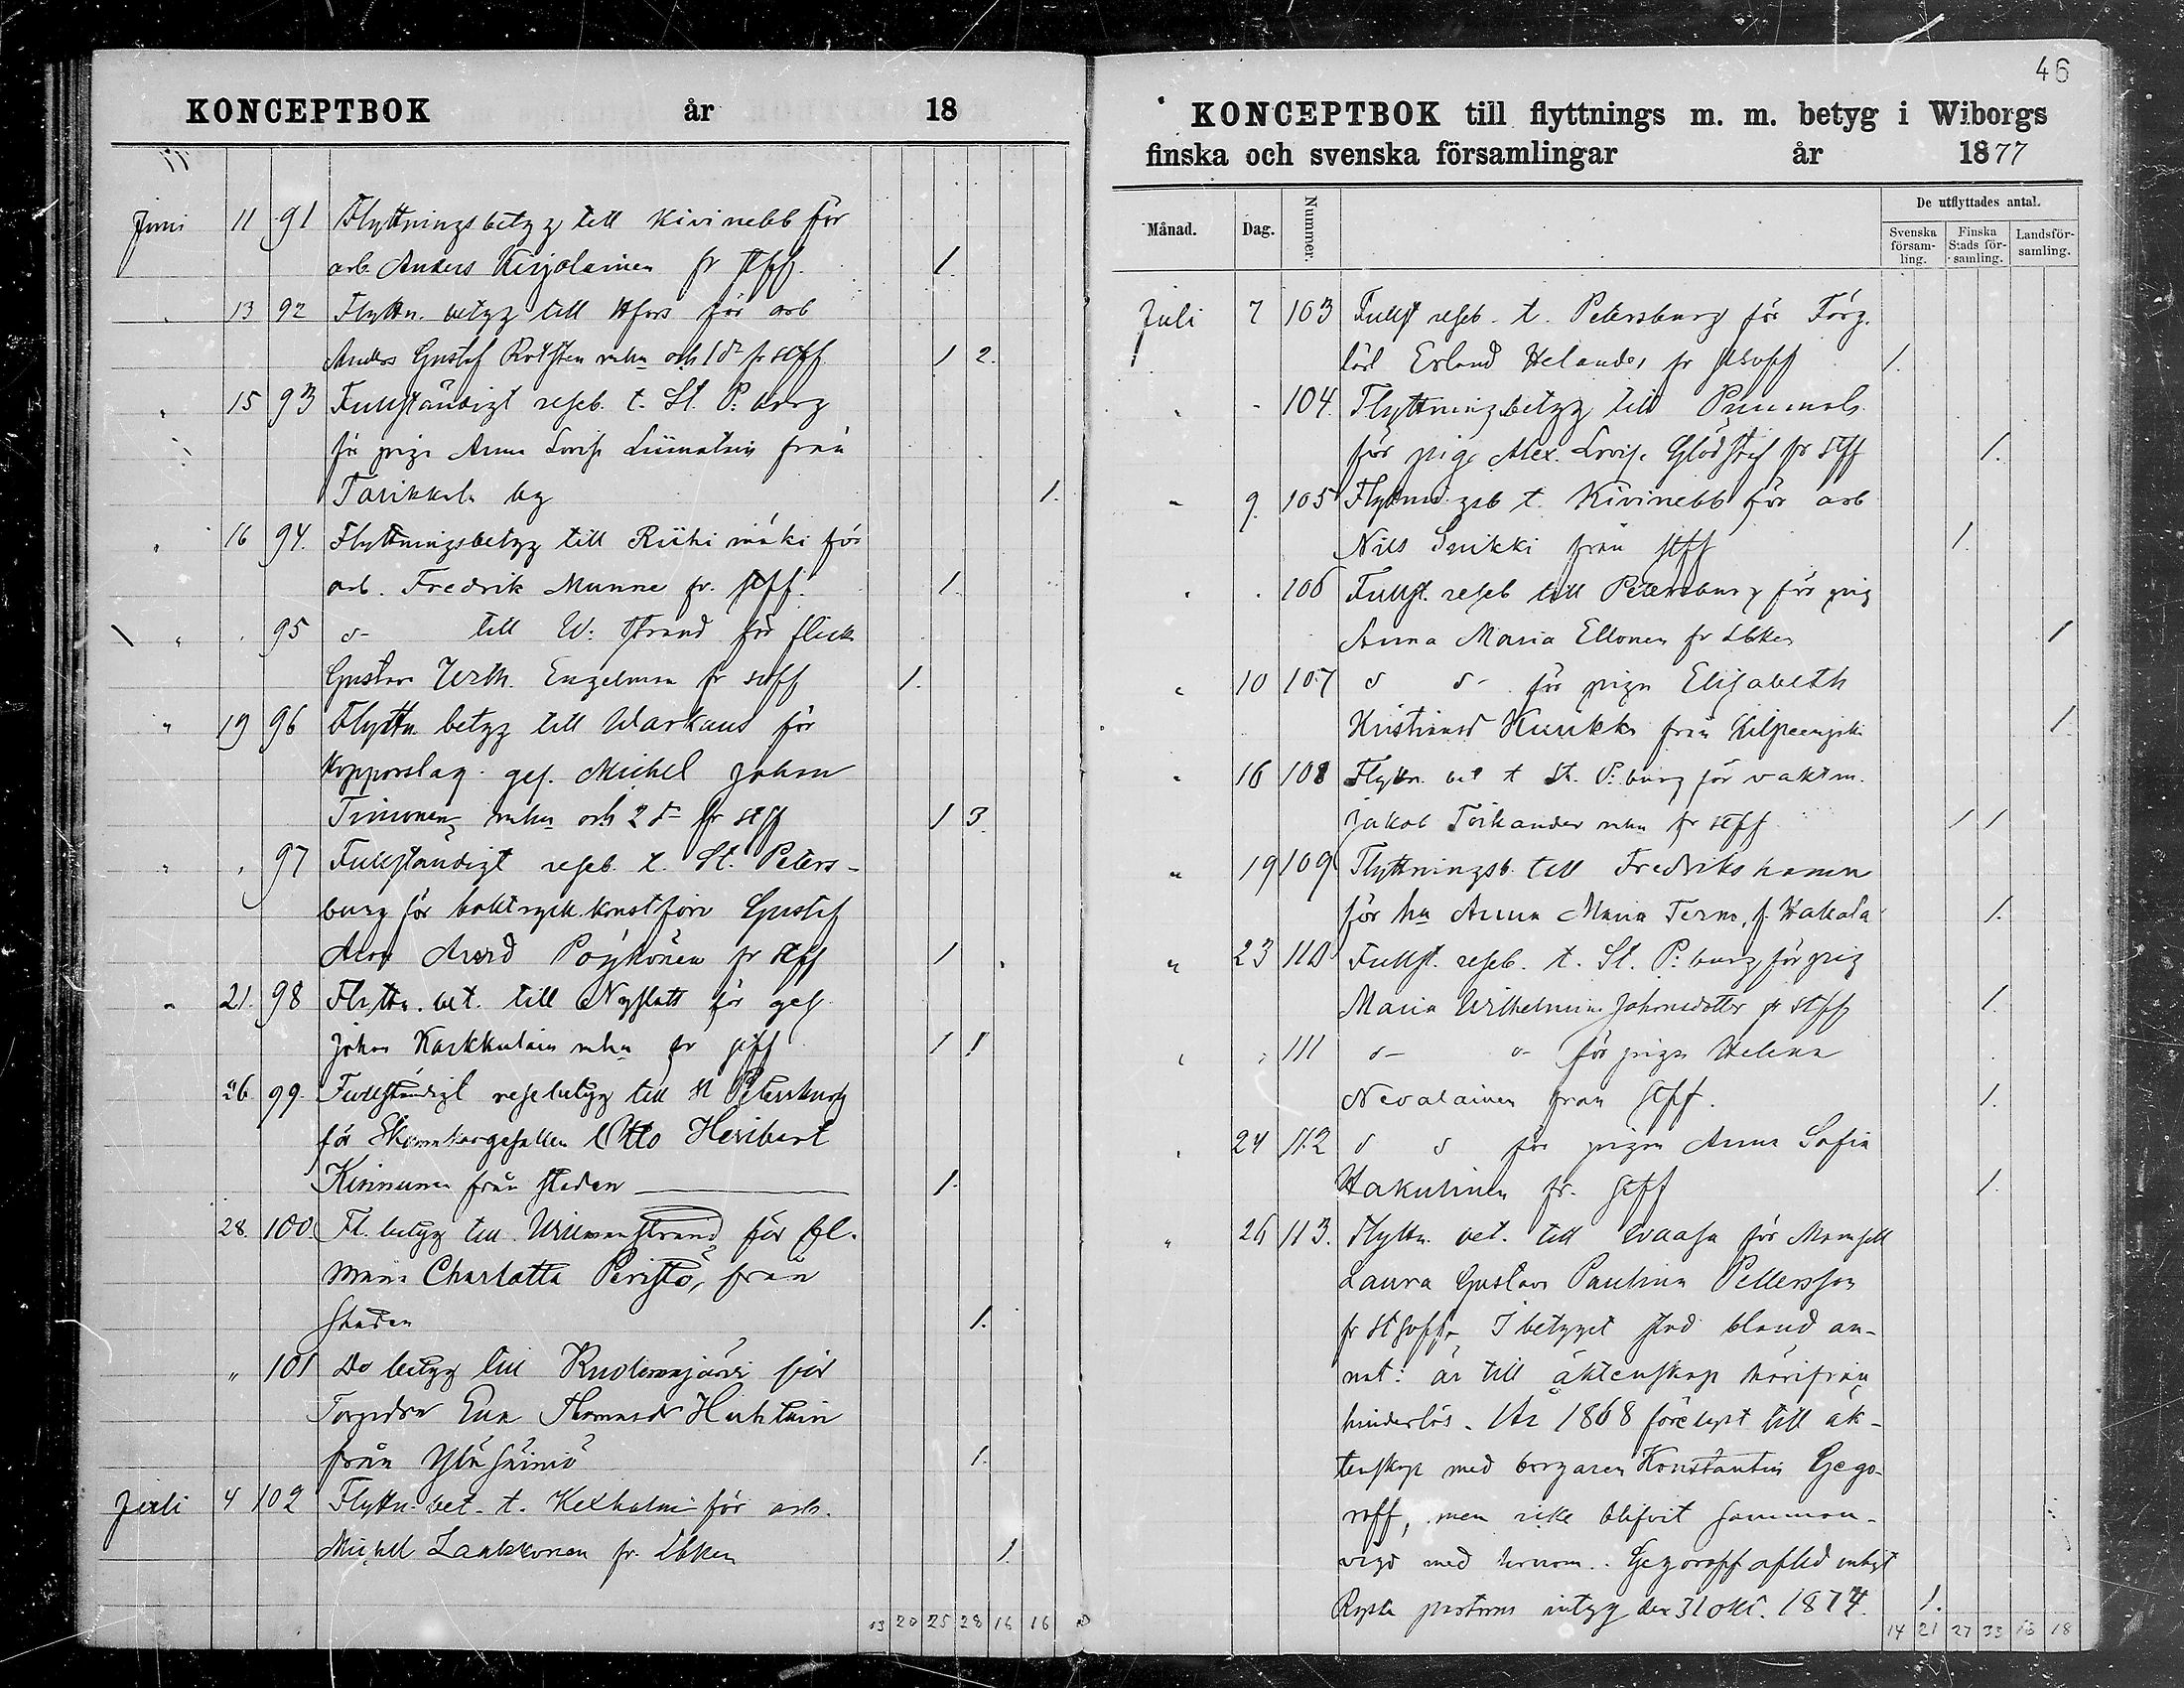 KONCEPTBOK år 18
77
Juni 11 91 Flyttningsbetyg till Kivinebb för
arb. Anders Kirjolainen fr stff. 1
13 92 Flyttn. betyg till Hfors för arb
Anders Gustaf mhu och 1 dr fr stff 1 2.
15 93 Fullständigt reseb. t. St. P:burg
för piga Anna Lovisa Liimatain från
Tarikkala by 1.
16 94. Flyttningsbetyg till Riihimäki för
arb. Fredrik Munne fr. stff. 1.
95 d- till W:strand för flick
Gustava Wilh. Engelman fr stff 1.
" 19 96 Flyttn. betyg till Warkaus för
kopparslag. ges. Michel Johan
Timonen mhu och 2 dr fr stff 1 3.
97 Fullständigt reseb. t. St. Peters-
burg för Gustaf
Arvid Pöyhönen fr stff 1
21. 98 Flyttn. bet. till Nyslott för ges.
Johan Karkkulain mhu fr stff 1 1
26. 99. Fullständigt resebetyg till St Petersburg
för Otto Heribert
Kinnunen från staden 1.
28. 100. Fl. betyg till Willmanstrand för
Maria Charlotta Peristö, från
staden 1.
" 101 Do betyg till Ruokonjärvi för
Eva Thomasdr
från 1.
Juli 4 102 Flyttn. bet. t. Kexholm för arb.
Michel Laakkonen fr. Lbken 1.
13 20 25 28 16 16
46
KONCEPTBOK till flyttnings m. m. betyg i Wiborgs
finska och svenska församlingar år 1877
De utflyttades antal.
Månad. Dag. Nummer. Svenska försam-ling. Finska Stads för-samling. Landsför-samling.
Juli 7 103 Fullst reseb. t. Petersburg för Förg.
lärl Erland Helander fr stsvff 1.
- 104. Flyttningsbetyg till Pumala
för piga Alex. Lovisa Glödstaf fr stff 1.
" 9. 105 Flyttningsb t. Kivinebb för arb
Nils Suikki från stff 1.
106 Fullst. reseb till Petersburg för pig
Anna Maria Ellonen fr Lbken 1
10 107 d d- för pigan Elisabeth
Kristiansd Kuukka från Kilpeenjoki 1.
16 108 Flyttn. bet t St. P:burg för vaktm.
Jakob Toikander mhu fr stff 1 1
" 19 109 Flyttningsb. till Fredrikshamn
för hu Anna Maria Terno, f. Hakala 1.
" 23 110 Fullst. reseb. t. St. P:burg för pig
Maria Wilhelmina Johansdotter fr stff 1.
111 d- d- för pigan Helena
Nevalainen från stff. 1.
24 112 d d för pigan Anna Sofia
Hakulinen fr. stff 1.
" 26 113. Flyttn. bet. till Waasa för Mamsell
Laura Gustava Paulina Pettersson
fr stsvff. I betyget stod bland an-
nat: är till äktenskap härifrån
hinderlös. År 1868 förelyst till äk-
tenskap med borgaren Konstantin Gego-
roff, men icke blifvit samman-
vigd med honom. Gegoroff afled enligt
Ryska pastorns intyg den 31 okt. 1874. 1.
14 21 27 33 16 18